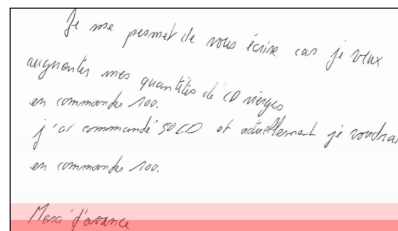 Je me permet de vous écrire car je veux
augmenter mes quantités de CD vierges
en commander 100.
j'ai commandé 50 CD et actuellement je voudrais
en commander 100.
Merci d'avance